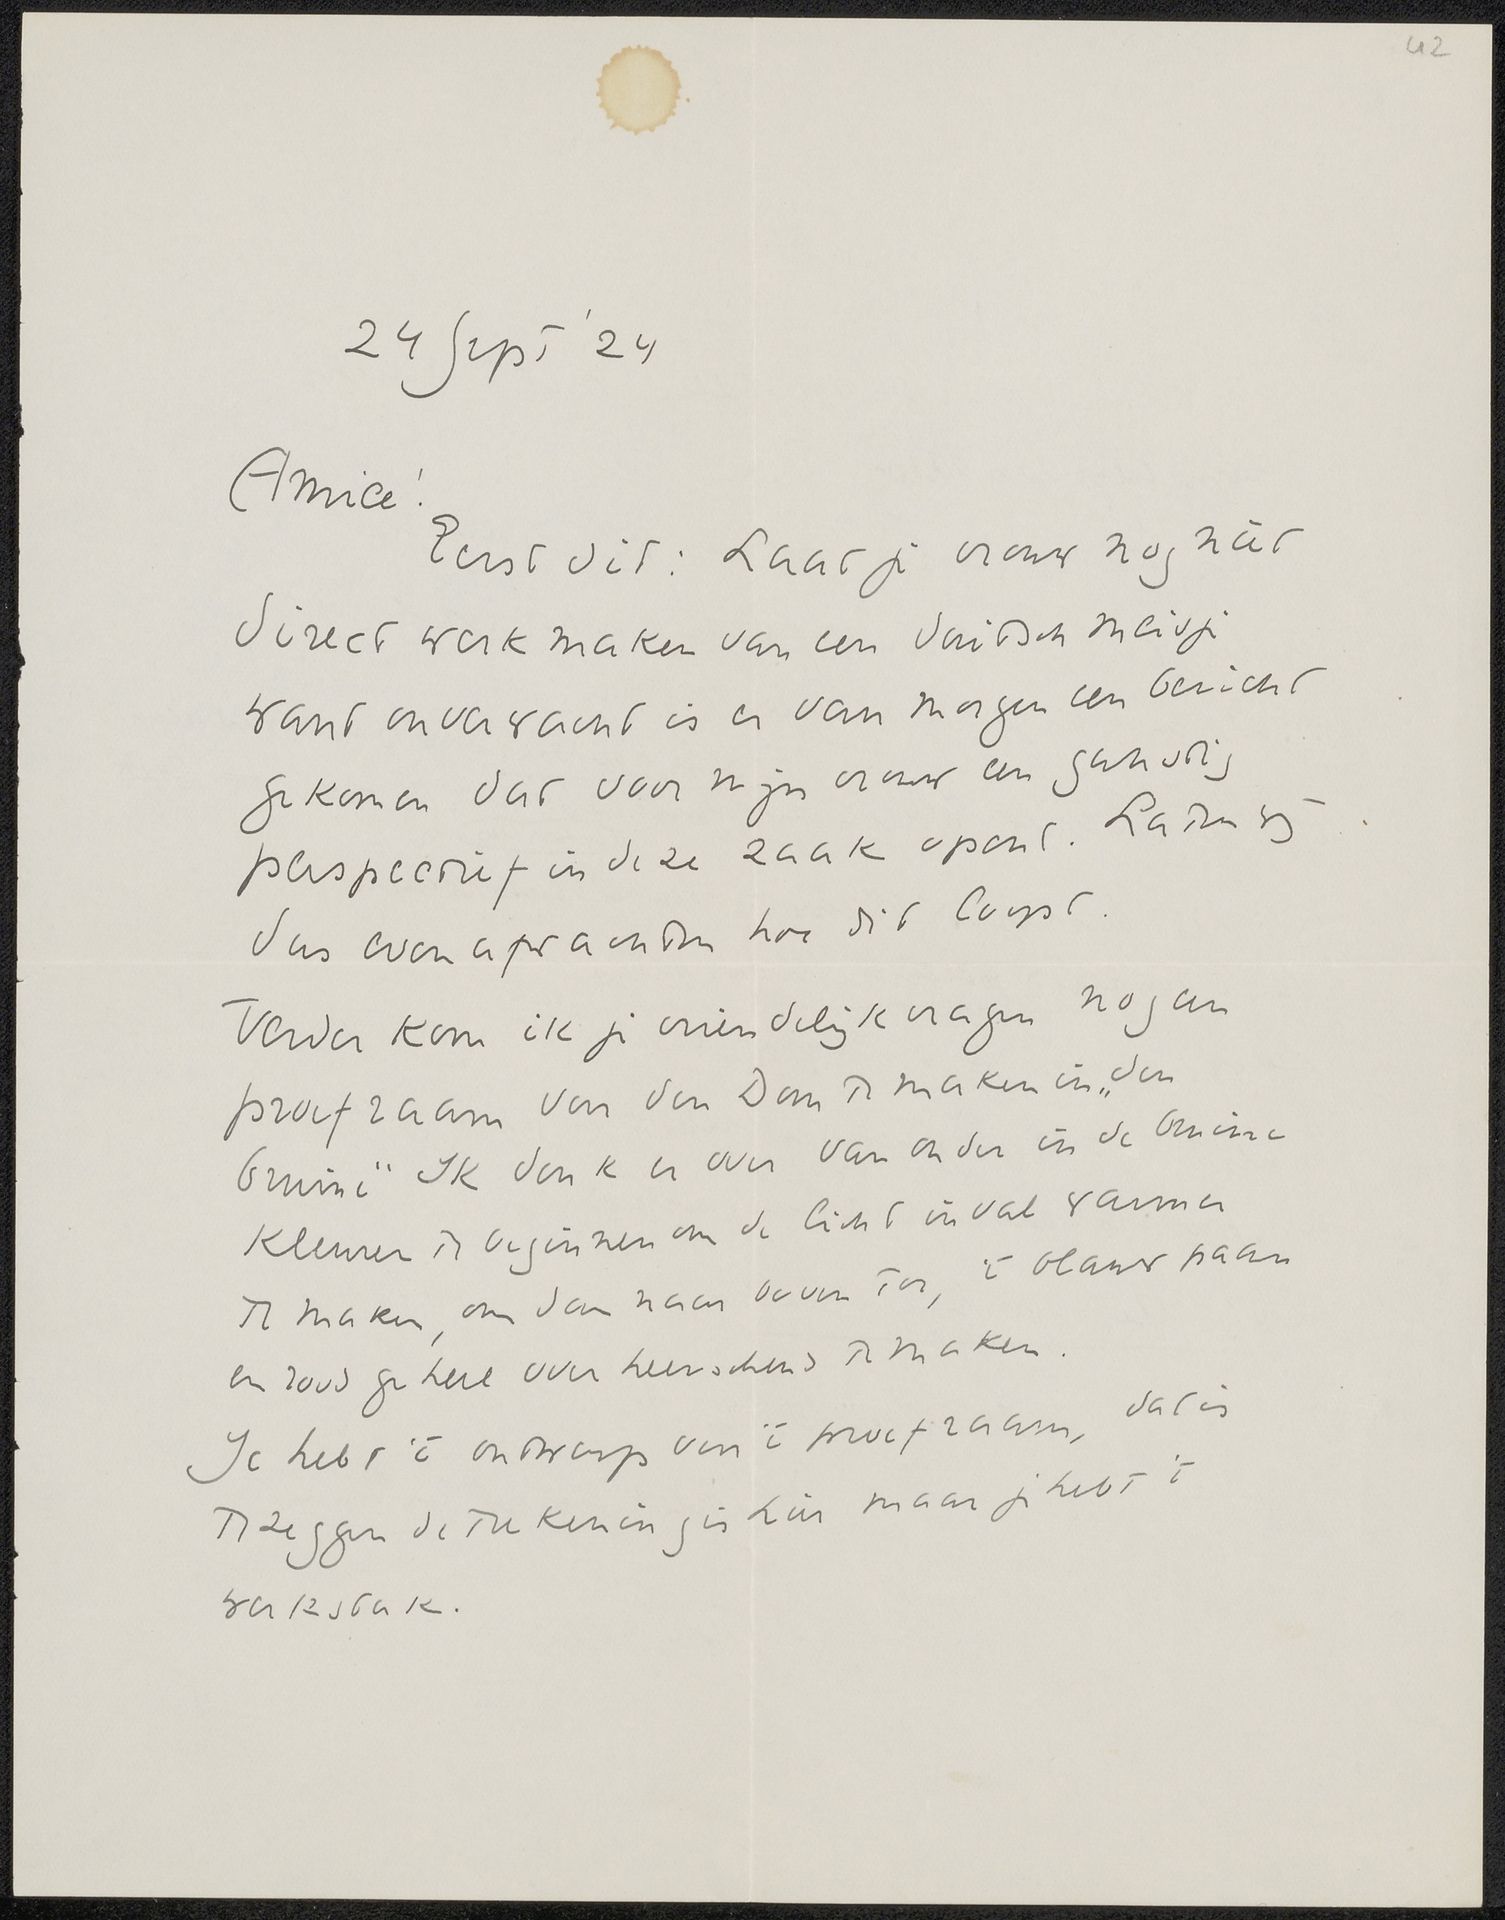 42
24 Sept '24
Amice!
Eerst dit: Laat je vrouw nog niet
direct werk maken van een duitsch meisje
want onverwacht is er van morgen een bericht
gekomen dat voor mijn vrouw een gunstig
perspectief in deze zaak opent. Laten wij
dus even afwachten hoe dit loopt.
Verder kom ik je vriendelijk vragen nog een
proefraam van den Dom te maken in „den
bruine" Ik denk er over van onder in de bruine
kleuren te beginnen om de licht inval warmer
te maken, om dan naar boven toe, 't blauw paars
en rood geheel overheerschend te maken.
Je hebt 't ontwerp van 't proefraam, dat is
te zeggen de teekening is hier maar je hebt 't
werkstuk.